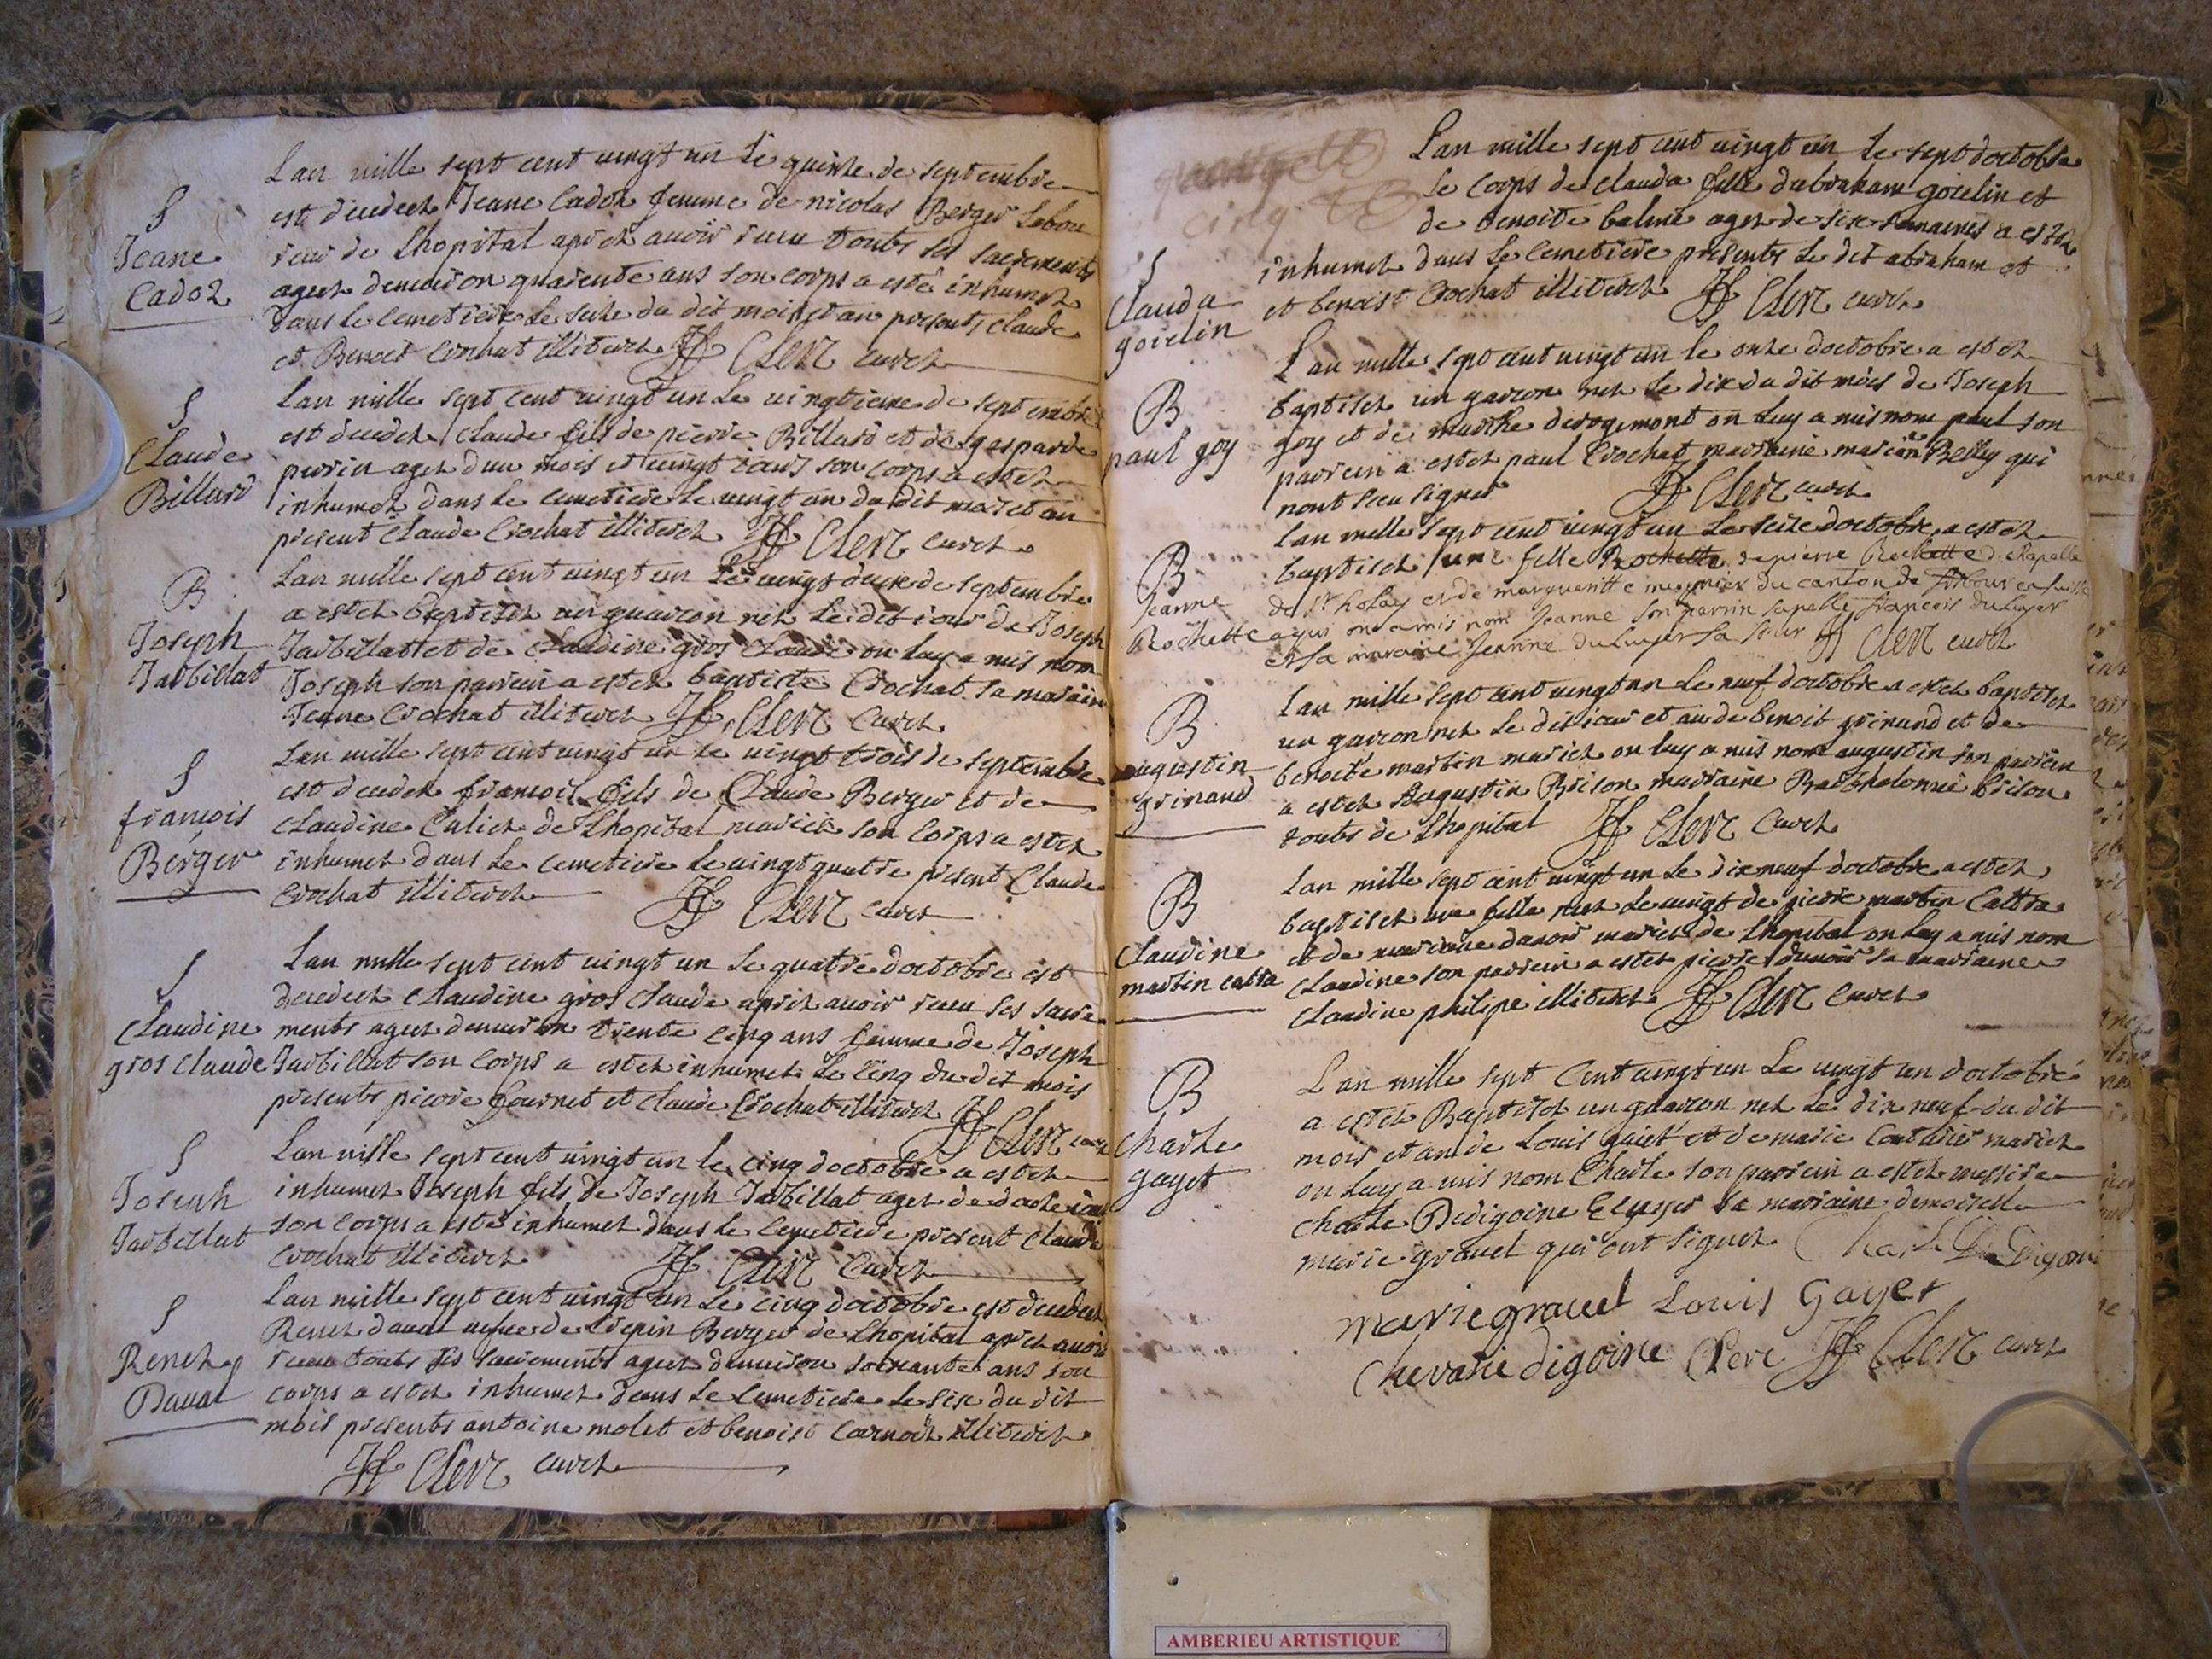 Lan mille sept cent vingt un le quinse de septembre
est decedeez Jeane Cadoz femme de nicolas Berger labou
reur de Lhopital aprez avoir receu touts ses sacrements
ageez denviron quarente ans son corps a esté inhumez
dans le cemetiere le seise du dit mois et an presents claude
et Benoit Crochat illiterez Clerc curez
S
Jeane
Cadoz
Lan mille sept cent vingt un Le vingtieme de septembre
est decedez Claude fils de pierre Billard et de gasparde
perrin agez dun mois et vingt iours son corps a estez
inhumez dans le cemetiere le vingt un du dit mois et an
present Claude Crochat illiterez Clerc curez
S
Claude
Billard
Lan mille sept cent vingt un Le vingt deux de septembre
a estez baptisez un guarcon nez Le dit iour de Joseph
Jarbillat et de Claudine gros Claude on luy a mis nom
Joseph son parrein a estez baptiste Crochat sa maraine
Jeane Crochat illiterez Clerc Curez
B
Joseph
Jarbillat
Lan mille sept cent vingt un le vingt trois de septembre
est decedez francois fils de Claude Berger et de
Claudine Caliez de Lhopital mariez son corps a estez
inhumez dans le cemetiere le vingt quatre present Claude
Crochat illiterez Clerc curez
S
francois
Berger
Lan mille sept cent vingt un le quatre doctobre est
decedeez Claudine gros Claude aprez avoir receu ses sacre
ments ageez denviron trente cinq ans femme de Joseph
Jarbillat son corps a estez inhumez Le cinq du dit mois
presents pierre fournet et claude Crochat illiterez Clerc curez
S
Claudine
gros Claude
Lan mille sept cent vingt un le cinq doctobre a estez
inhumez Joseph fils de Joseph Jarbillat agez de
son corps a esté inhumez dans le Cemetiere present Claude
Crochat illiterez Clerc Curez
S
Joseph
Jarbillat
Lan mille sept cent vingt un Le cinq doctobre est decedeez
Renez daval de Crepin Berger de Lhopital aprez avoir
receu touts ses sacrements ageez denviron soixante ans son
corps a estez inhumez dans le Cemetiere le six du dit
mois presents antoine molet et benoist illiterez
Clerc curez
S
Renez
Daval
cinq
Lan mille sept cent vingt un Le sept doctobre
le corps de clauda fille dabraham goiclin et
de benoite balme agez de six semaines a estez
inhumez dans le cemetiere presents Le dit abraham et
et benoist Crochat illiterez Clerc curez
S
Clauda
goiclin
Lan mille sept cent vingt un le onze doctobre a estez
baptisez un garcon nez le dix du dit mois de Joseph
goy et de marthe derogemont on luy a mis nom paul son
parrein a estez paul Crochat marraine Belly qui
nont sceu signer Clerc curez
B
paul goy
Lan mille sept cent vingt un Le seise doctobre a estez
baptisez une fille Rochette de pierre Rochette
de et de margueritte meynier du canton de
a qui on a mis nom Jeanne son parrin sapelle francois
et sa maraine Jeanne sa seur Clerc curez
B
Jeanne
Rochette
Lan mille sept cent vingt un Le neuf doctobre a estez baptisez
un garcon nez le dit iour et an de benoit grinand et de
benoite martin mariez on luy a mis nom augustin son parrein
a estez Augustin Brison marraine Bartholomie brison
touts de Lhopital Clerc Curez
B
augustin
grinand
Lan mille sept cent vingt un Le dix neuf doctobre a estez
baptisez une fille neez Le vingt de pierre martin Cattra
et de mariane mariez de Lhopital on luy a mis nom
Claudine son parrein a estez pierre sa marraine
Claudine philipe illiterez Clerc curez
B
Claudine
martin catra
Lan mille sept Cent vingt un Le vingt un doctobre
a estez Baptisez un guarcon nez Le dix neuf du dit
mois et an de Louis gaiet et de marie mariez
on luy a mis nom Charle son parrein a estez messire
Charle Dedigoine Ecuyer sa marraine demoiselle
marie gravel qui ont signez
B
Charle
gayet
marie gravel Louis Gayet
digoine Clerc curez
AMBERIEU ARTISTIQUE